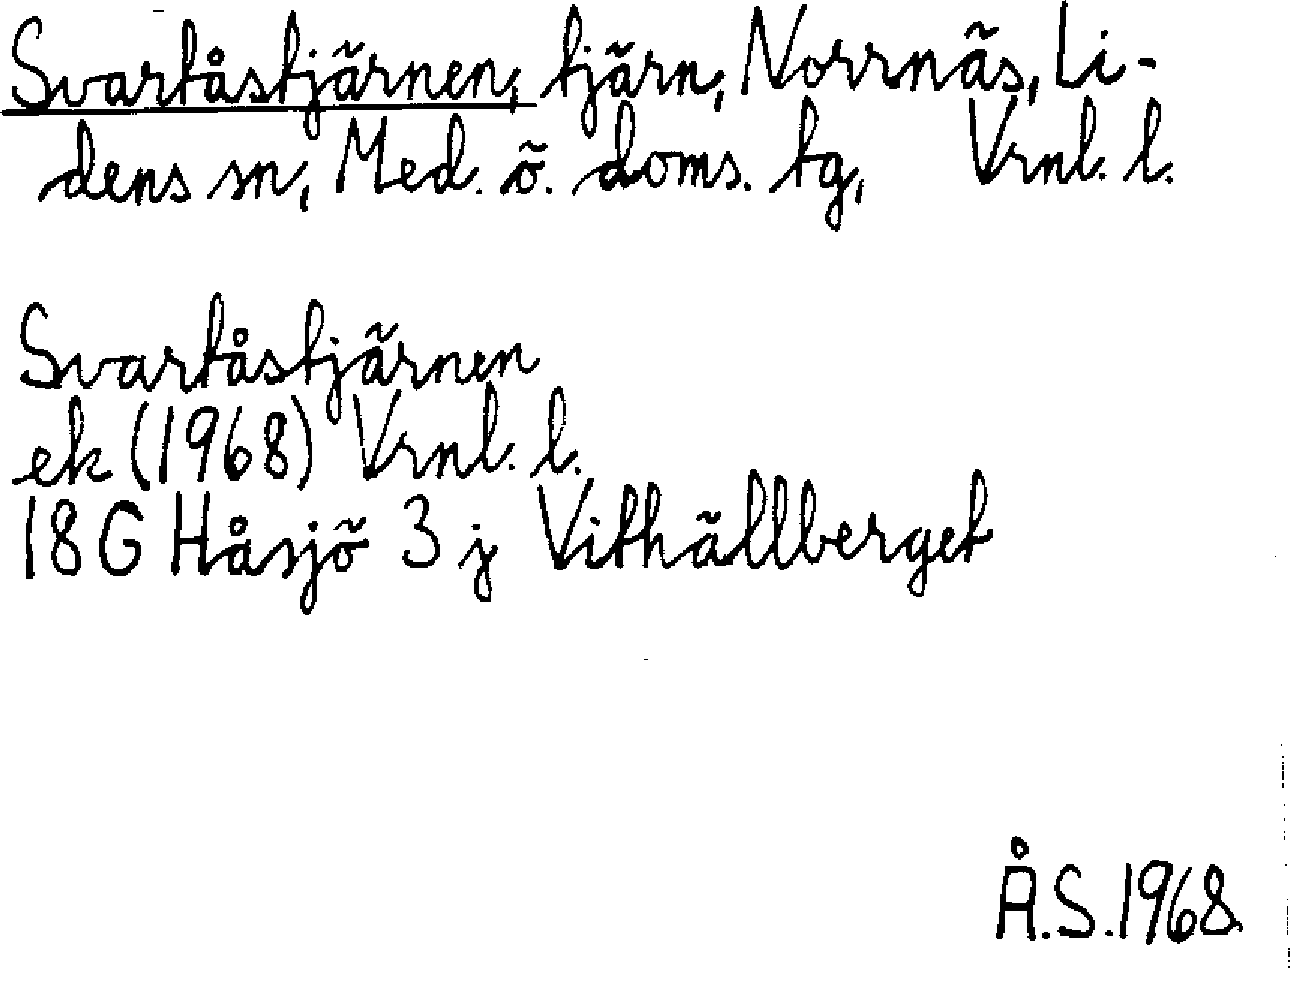 Svartåstjärnen, tjärn, Norrnäs, Li-
dens sn, Med. ö. doms. tg, Vrnl. l.
Svartåstjärnen
ek (1968) Vrnl. l.
18 G Håsjö 3 j Vithällberget
Å.S.1968.